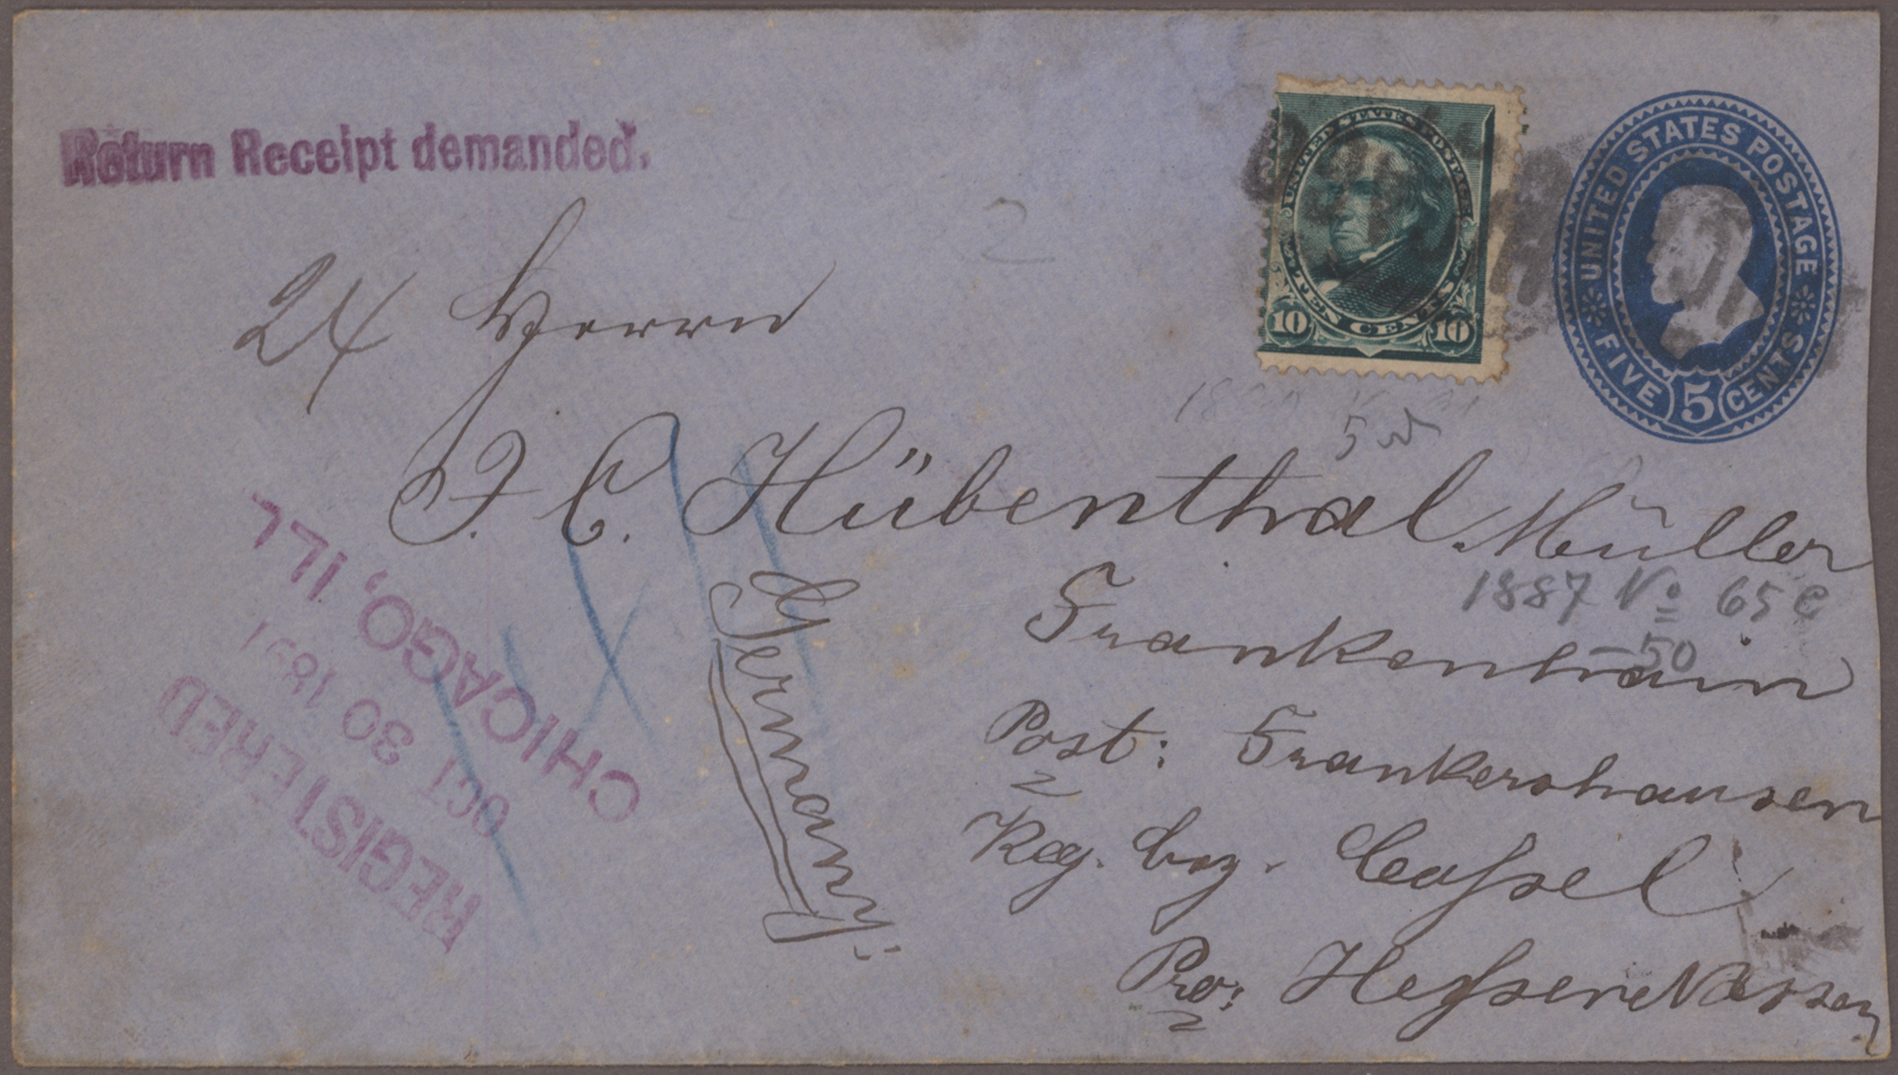 Return Receipt demanded.
UNITED STATES POSTAGE
TEN CENTS
10 10
UNITED STATES POSTAGE
FIVE CENTS
5
2
24 Herrn
J. C. Hübenthal. Müller
1887 No 65c
-50
Frankenhain
Post: Frankershausen
Reg. Bez. Cassel
Pro: Hessen Nassau
Germany.
REGISTERED
OCT 30 1891
CHICAGO, ILL